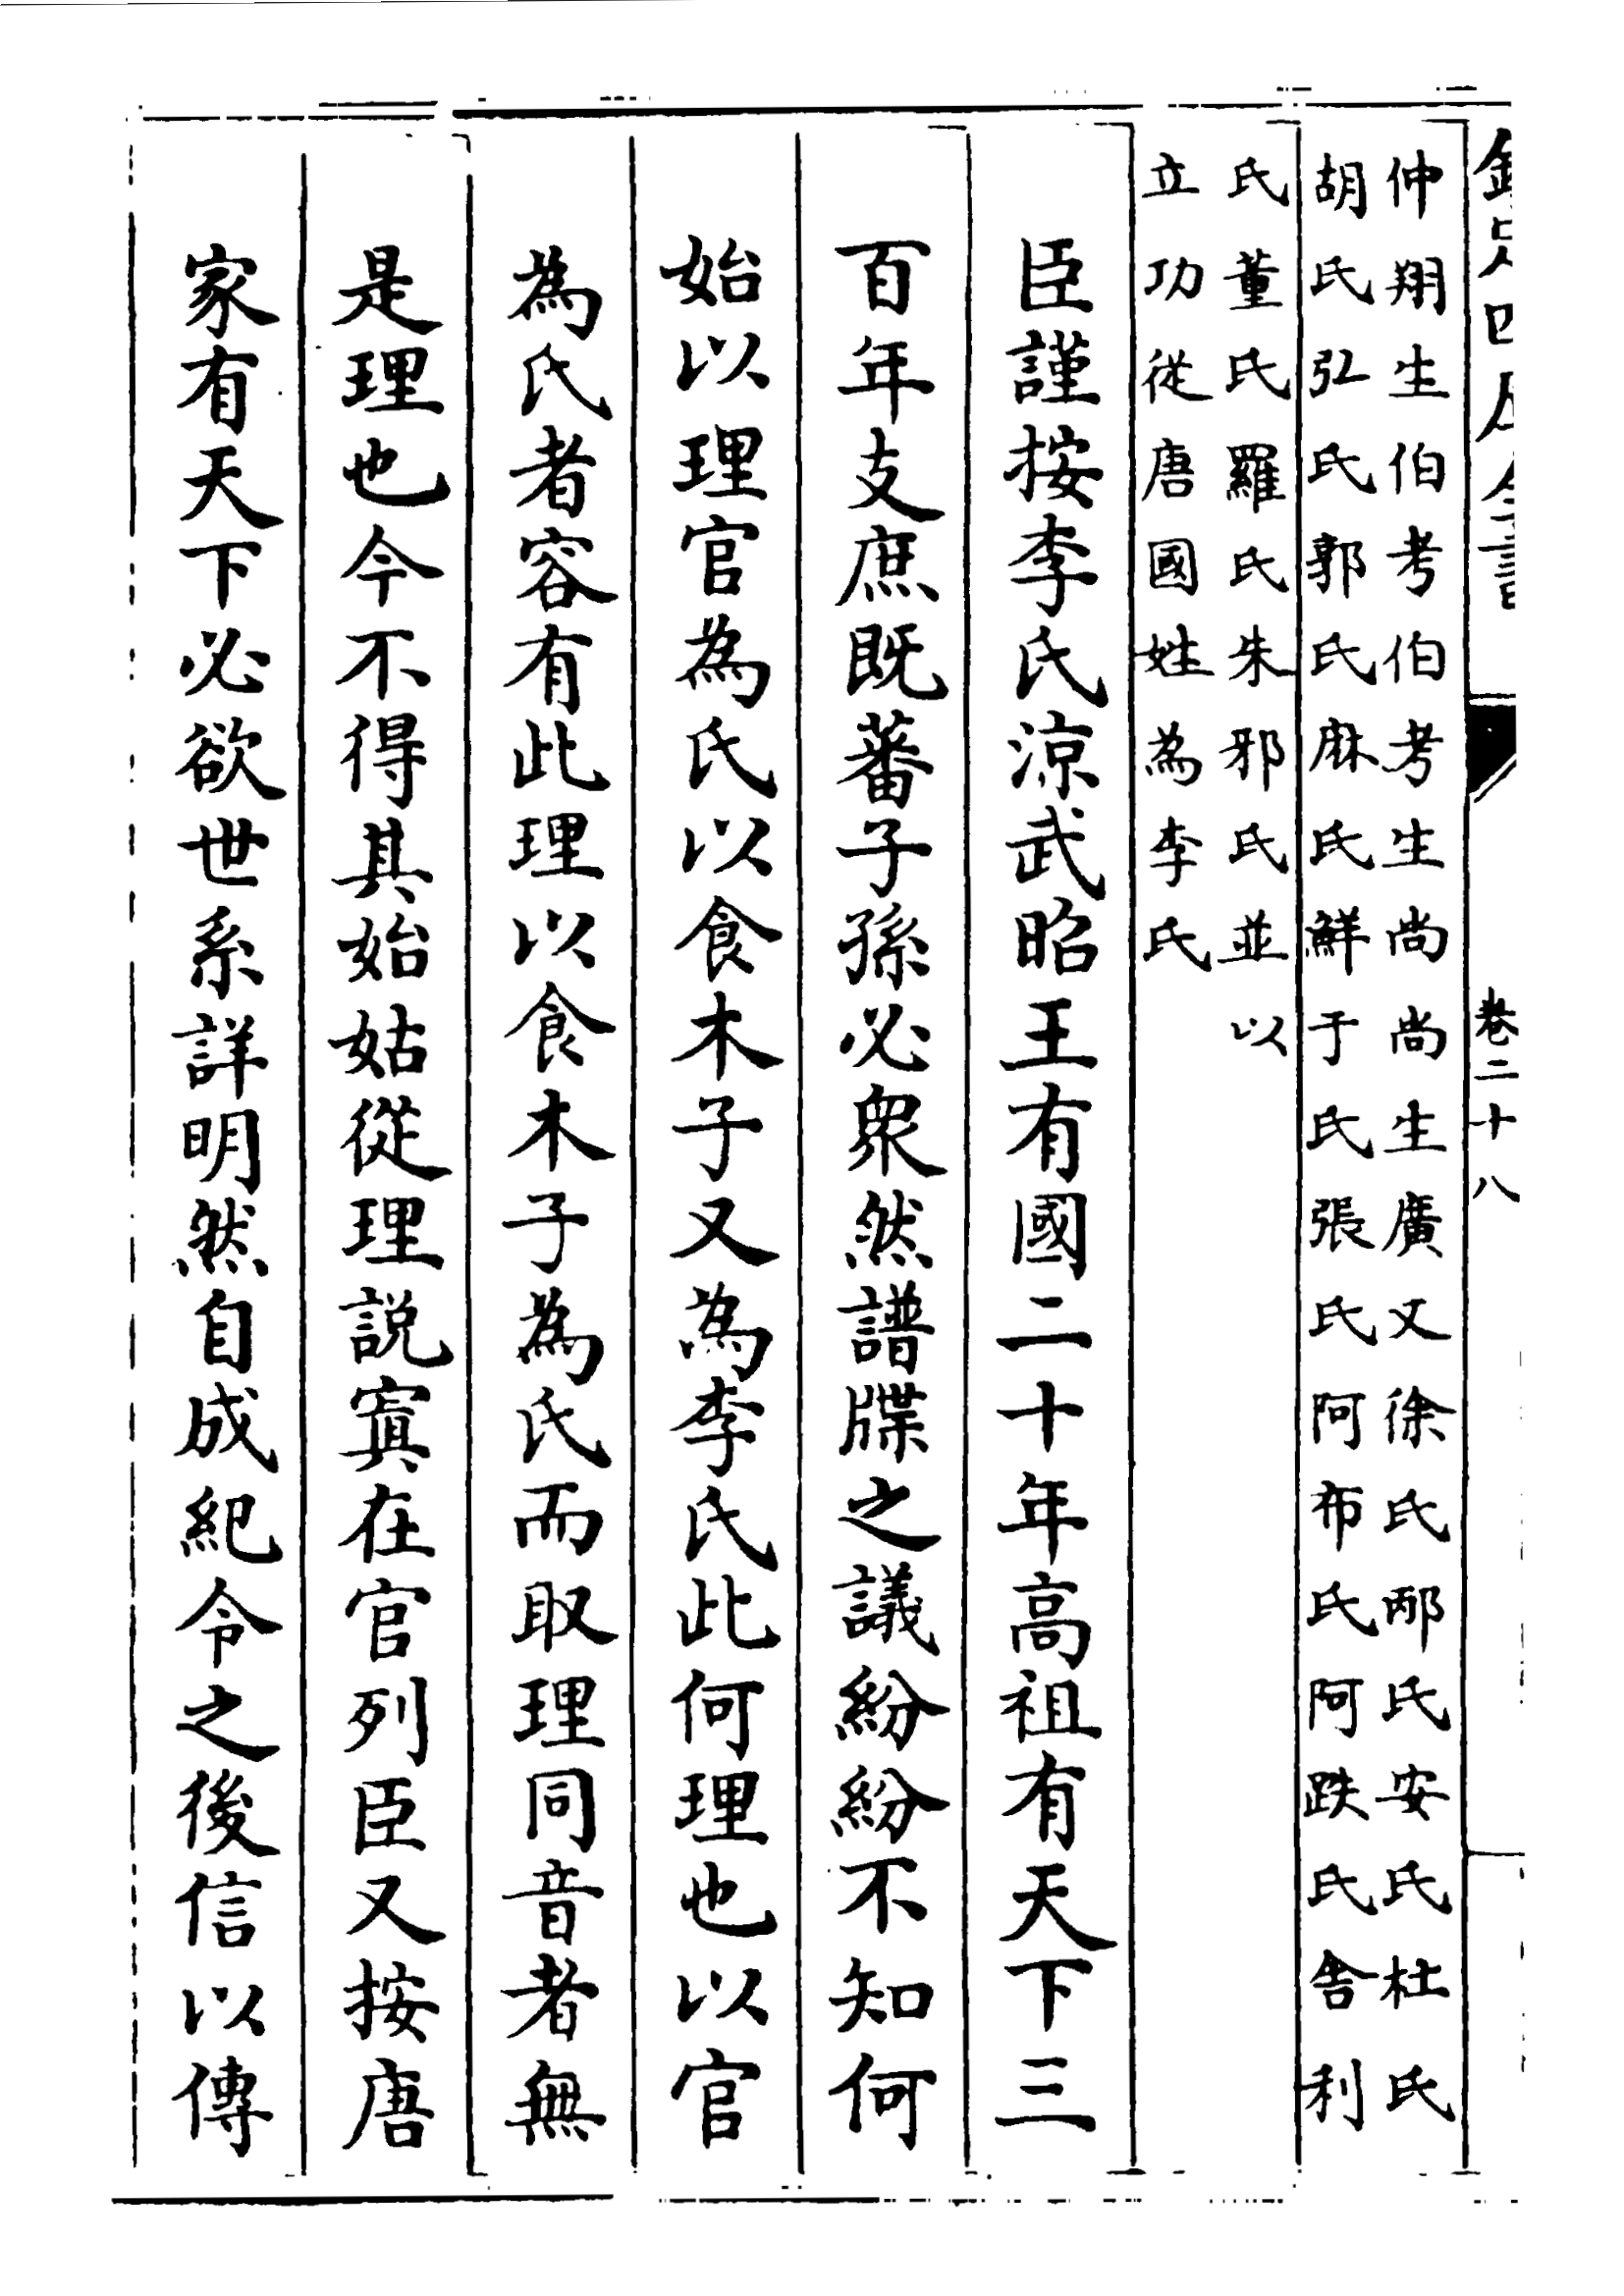 欽定四庫全書 卷二十八
仲翔生伯考伯考生尚尚生廣又徐氏邴氏安氏杜氏
胡氏弘氏郭氏麻氏鮮于氏張氏阿布氏阿跌氏舍利
氏董氏羅氏朱邪氏並以
立功從唐國姓為李氏
臣謹按李氏涼武昭王有國二十年高祖有天下三
百年支庶既蕃子孫必衆然譜牒之議紛紛不知何
始以理官為氏以食木子又為李氏此何理也以官
為氏者容有此理以食木子為氏而取理同音者無
是理也今不得其始姑從理說寘在官列臣又按唐
家有天下必欲世系詳明然自成紀令之後信以傳